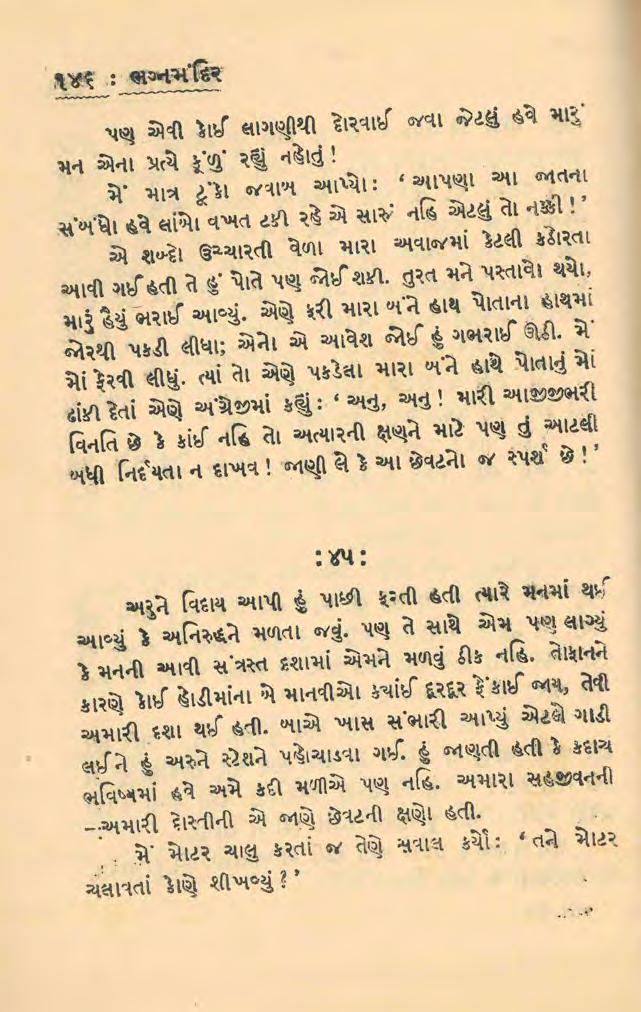 ૧૪૬ : ભગ્નમંદિર
પણ એવી કોઈ લાગણીથી દોરવાઈ જવા જેટલું હવે મારું
મન એના પ્રત્યે કૂંળું રહ્યું નહોતું!
મેં માત્ર ટૂંકો જવાબ આપ્યો: ‘આપણા આ જાતના
સંબંધો હવે લાંબો વખત ટકી રહે એ સારું નહિ એટલું તો નક્કી!’
એ શબ્દો ઉચ્ચારતી વેળા મારા અવાજમાં કેટલી કઠોરતા
આવી ગઈ હતી તે હું પોતે પણ જોઈ શકી. તુરત મને પસ્તાવો થયો,
મારું હૈયું ભરાઈ આવ્યું. એણે ફરી મારા બંને હાથ પોતાના હાથમાં
જોરથી પકડી લીધા; એનો એ આવેશ જોઈ હું ગભરાઈ ઊઠી. મેં
મોં ફેરવી લીધું. ત્યાં તો એણે પકડેલા મારા બંને હાથે પોતાનું મોં
ઢાંકી દેતાં એણે અંગ્રેજીમાં કહ્યું: ‘અનુ, અનુ! મારી આજીજીભરી
વિનતિ છે કે કાંઈ નહિ તો અત્યારની ક્ષણને માટે પણ તું આટલી
બધી નિર્દયતા ન દાખવ! જાણી લે કે આ છેવટનો જ સ્પર્શ છે!’
:૪૫:
અરુને વિદાય આપી હું પાછી ફરતી હતી ત્યારે મનમાં થઈ
આવ્યું કે અનિરુદ્ધને મળતા જવું. પણ તે સાથે એમ પણ લાગ્યું
કે મનની આવી સંત્રસ્ત દશામાં એમને મળવું ઠીક નહિ. તોફાનને
કારણે કોઈ હોડીમાંના બે માનવીઓ કયાંઈ દૂરદૂર ફેંકાઈ જાય, તેવી
અમારી દશા થઈ હતી. બાએ ખાસ સંભારી આપ્યું એટલે ગાડી
લઈને હું અરુને સ્ટેશને પહોચાડવા ગઈ. હું જાણતી હતી કે કદાચ
ભવિષ્યમાં હવે અમે કદી મળીએ પણ નહિ. અમારા સહજીવનની
—અમારી દોસ્તીની એ જાણે છેવટની ક્ષણો હતી.
મેં મોટર ચાલુ કરતાં જ તેણે સવાલ કર્યો: ‘તને મોટર
ચલાવતાં કોણે શીખવ્યું?’